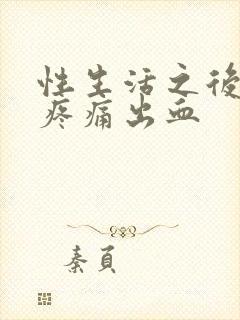 性生活之後
疼痛出血
秦頁